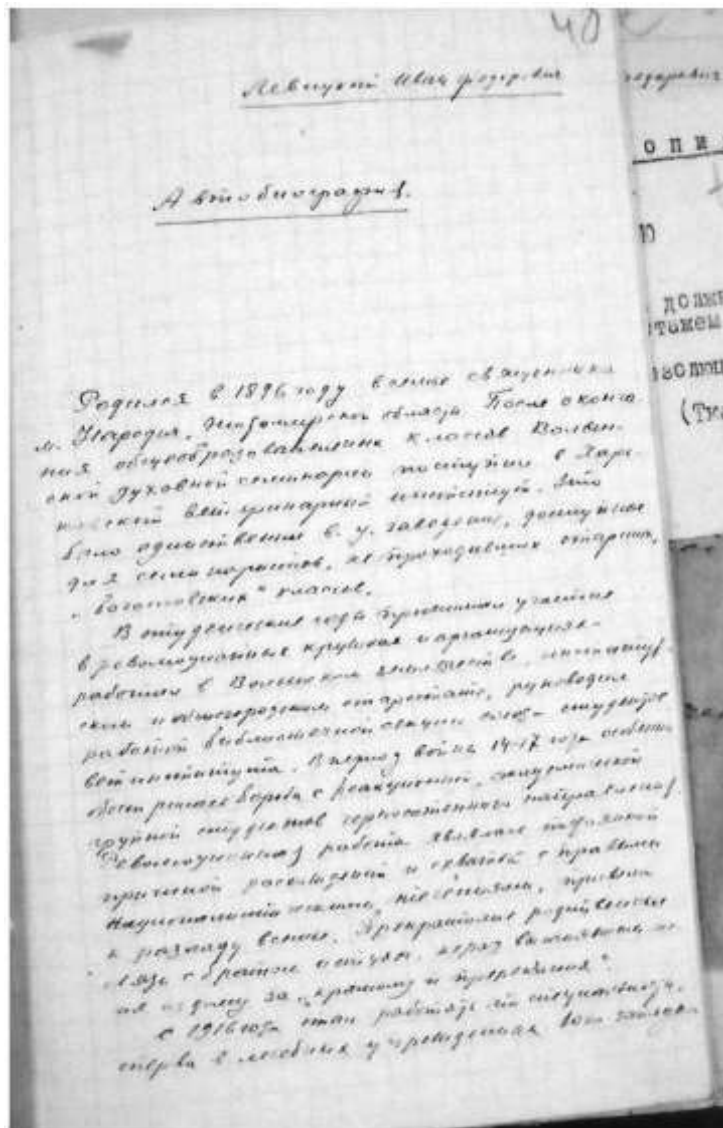 40
Левицкий Иван Федорович
Автобиография.
Родился в 1896 году в семье священника
м. Народичи, Житомирской области. После оконча-
ния общеобразовательных классов Волын-
ской духовной семинарии поступил в Харь-
ковский ветеринарный институт. Это
было единственное в. у. заведение, доступное
для семинаристов, не проходивших старших,
"богословских" классов.
В студенческие годы принимал участие
в революционных кружках и организациях-
работал в Волынском землячестве,
и общегородском старостате, руководил
работой библиотечной секции союза студентов
ветинститута. В период войны 14-17 года особенно
борьба с реакционной, академической
группой студентов
Революционная работа явилась
причиной расхождений и с правыми
националистическими привела
к разладу в семье.
связь с братом и отцом,
из дому за "крамолу и пререкания".
С 1916 года стал работать по специальности,
сперва в лечебных учреждениях
едорович
ОПИ
Ю
ДОЛЖ
стажем
золюц
(Тк